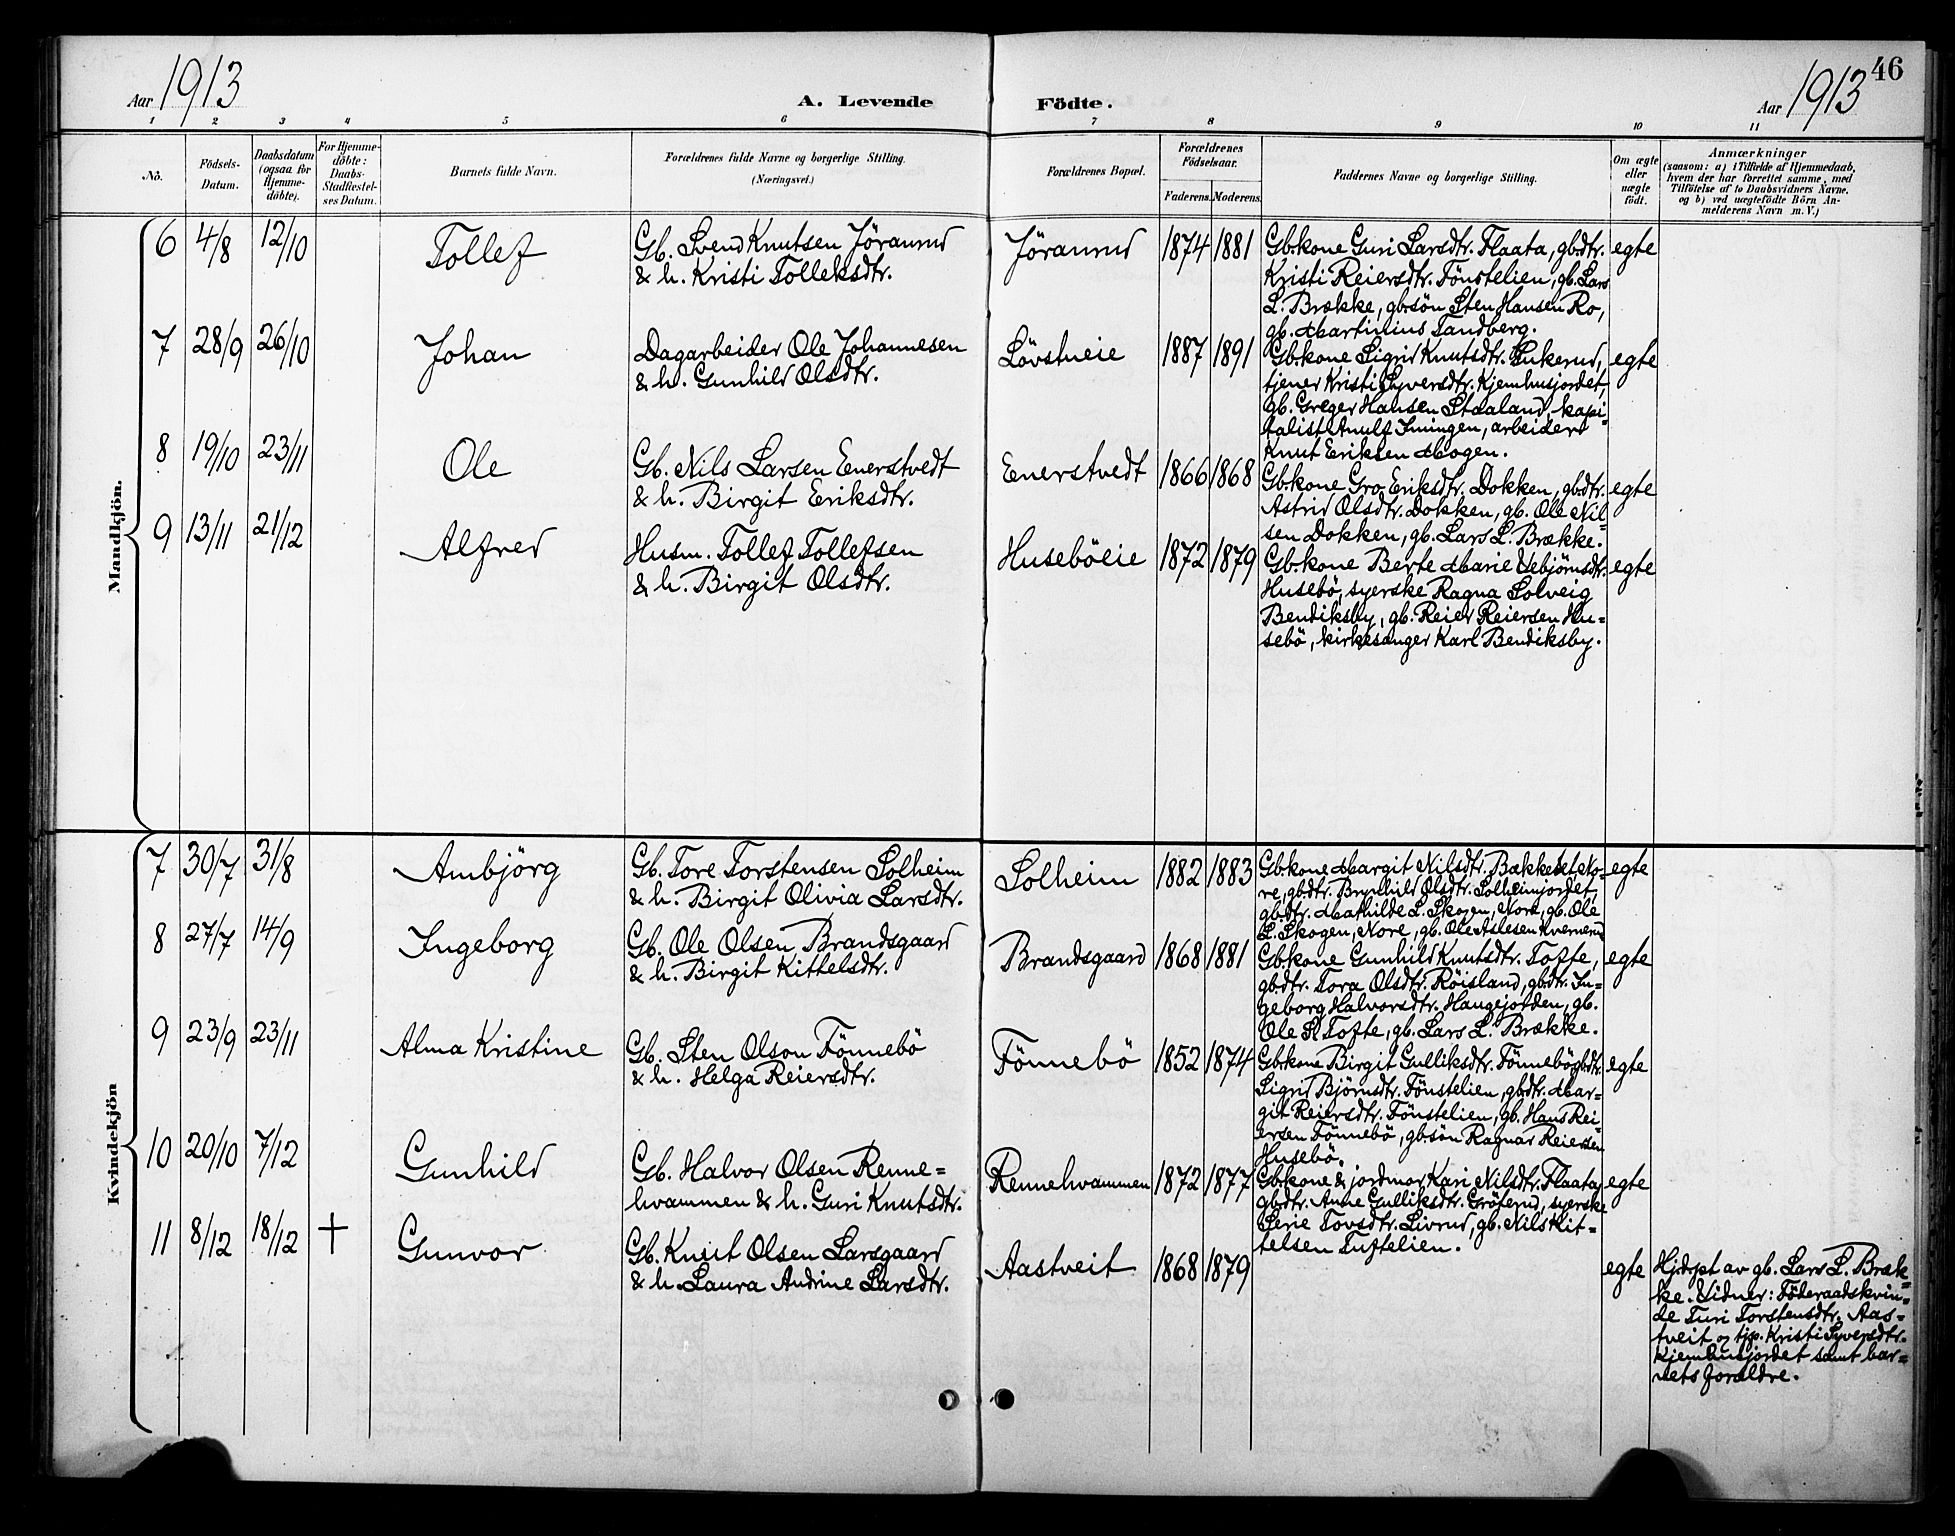 Aar 1913
A. Levende Födte.
Aar 1913
46
1 2 3 4 5 6 7 8 9 10 11
No.
Födsels-Datum.
Daabsdatum (ogsaa for Hjemmedöbte).
For Hjemmedöbte: Daabs-Stadfæstelses Datum.
Barnets fulde Navn.
Forældrenes fulde Navne og borgerlige Stilling. (Næringsvei.)
Forældrenes Bopæl.
Forældrenes Födselsaar.
Faderens. Moderens.
Faddernes Navne og borgerlige Stilling.
Om ægte eller uægte födt.
Anmærkninger
(saasom: a) i Tilfælde af Hjemmedaab,
hvem der har forrettet samme, med
Tilföielse af to Daabsvidners Navne,
og b) ved uægtefödte Börn An-
melderens Navn m. V.)
Mandkjön.
6 4/8 12/10 Tollef
Gb. Svend Knutsen Jöranrud
& h. Kristi Tolleksdtr.
Jöranrud 1874 1881
Gbkone Guri Larsdtr. Flaata, gbdtr.
Kristi Reiersdtr. Fönstelien, gb. Lars
L. Brække, gbsön Sten Hansen Ro,
gb. Martinius Sandberg.
egte
7 28/9 26/10 Johan
Dagarbeider Ole Johannesen
& h. Gunhild Olsdtr.
Lövstueie 1887 1891
Gbkone Sigrid Knutsdtr. Lukerud,
tjener Kristi Syversdtr. Kjemhusjordet,
gb. Greger Hansen Staaland, kapi-
talist Anulf Imingen, arbeider
Knut Eriksen Mogen.
egte
8 19/10 23/11 Ole
Gb. Nils Larsen Enerstvedt
& h. Birgit Eriksdtr.
Enerstvedt 1866 1868
Gbkone Gro Eriksdtr. Dokken, gbdtr.
Astrid Olsdtr. Dokken, gb. Ole Nil-
sen Dokken, gb. Lars L. Brække.
egte
9 13/11 21/12 Alfred
Husm. Tollef Tollefsen
& h. Birgit Olsdtr.
Huseböeie 1872 1879
Gbkone Berte Marie Vebjörnsdtr.
Husebö, syerske Ragna Solveig
Bendiksby, gb. Reier Reiersen Hu-
sebö, kirkesanger Karl Bendiksby.
egte
Kvindekjön
7 30/7 31/8 Ambjörg
Gb. Tore Torstensen Solheim
& h. Birgit Olivia Larsdtr.
Solheim 1882 1883
Gbkone Margit Nilsdtr. Bækkeset, No-
re, gbdtr. Brynhild Olsdtr. Solheimjordet,
gbdtr. Mathilde L. Skogen, Nore, gb. Ole
L. Skogen, Nore, gb. Ole Aslesen Kvernerud
egte
8 27/7 14/9 Ingeborg
Gb. Ole Olsen Brandsgaard
& h. Birgit Kittelsdtr.
Brandsgaard 1868 1881
Gbkone Gunhild Knutsdtr. Tofte,
gbdtr. Tora Olsdtr. Röisland, gbdtr. In-
geborg Halvorsdtr. Haugejorden, gb.
Ole S. Tofte, gb. Lars L. Brække.
egte
9 23/9 23/11 Alma Kristine
Gb. Sten Olson Fönnebö
& h. Helga Reiersdtr.
Fönnebö 1852 1874
Gbkone Birgit Gulliksdtr. Fönnebö, gbdtr.
Sigrid Björnsdtr. Fönstelien, gbdtr. Mar-
git Reiersdtr. Fönstelien, gb. Hans Rei-
ersen Fönnebö, gbsön Ragnar Reiersen
Husebö.
egte
10 20/10 7/12 Gunhild
Gb. Halvor Olsen Renne-
hvammen & h. Guri Knutsdtr.
Rennehvammen 1872 1877
Gbkone & jordmor Kari Nilsdtr. Flaata,
gbdtr. Anne Gulliksdtr. Gröterud, syerske
Serie Tovsdtr. Livrud, gb. Nils Kit-
telsen Tuftelien.
egte
11 8/12 18/12 † Gunvor
Gb. Knut Olsen Larsgaard
& h. Laura Andrine Larsdtr.
Aastveit 1868 1879
egte
Hj.døpt av gb. Lars L. Bræk-
ke. Vidner: Föderaadskvin-
de Turi Torstensdtr. Aas-
tveit og tjp. Kristi Syversdtr.
Kjemhusjordet samt bar-
nets foraldre.